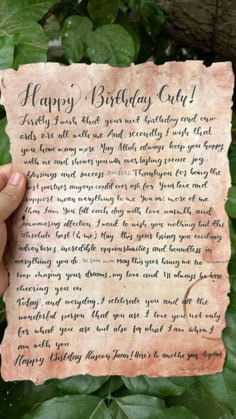 Happy Birthday Cuty!
Firstly Happy your next birthday and our
are all with me And secondly I wish that
you have many more May Allah always keep you happy
with me and showers you with everlasting peace joy
blessings and success Ameen. Thankyou for being the
best partner anyone could ever ask for Your love and
support mean everything to me You are more of me
than I am You fill each day with love warmth and
unwavering affection I want to wish you nothing but the
absolute best (& me) May this year bring you exciting
adventures, incredible opportunities and boundless in
everything you do. May this year bring me too
keep chasing your dreams, my love and I'll always be
cheering you on
Today and everyday, I celebrate you and all the
wonderful person that you are I love you not only
for what you are but also for what I am when I
am with you
Happy Birthday Jaan! Here's to another year together